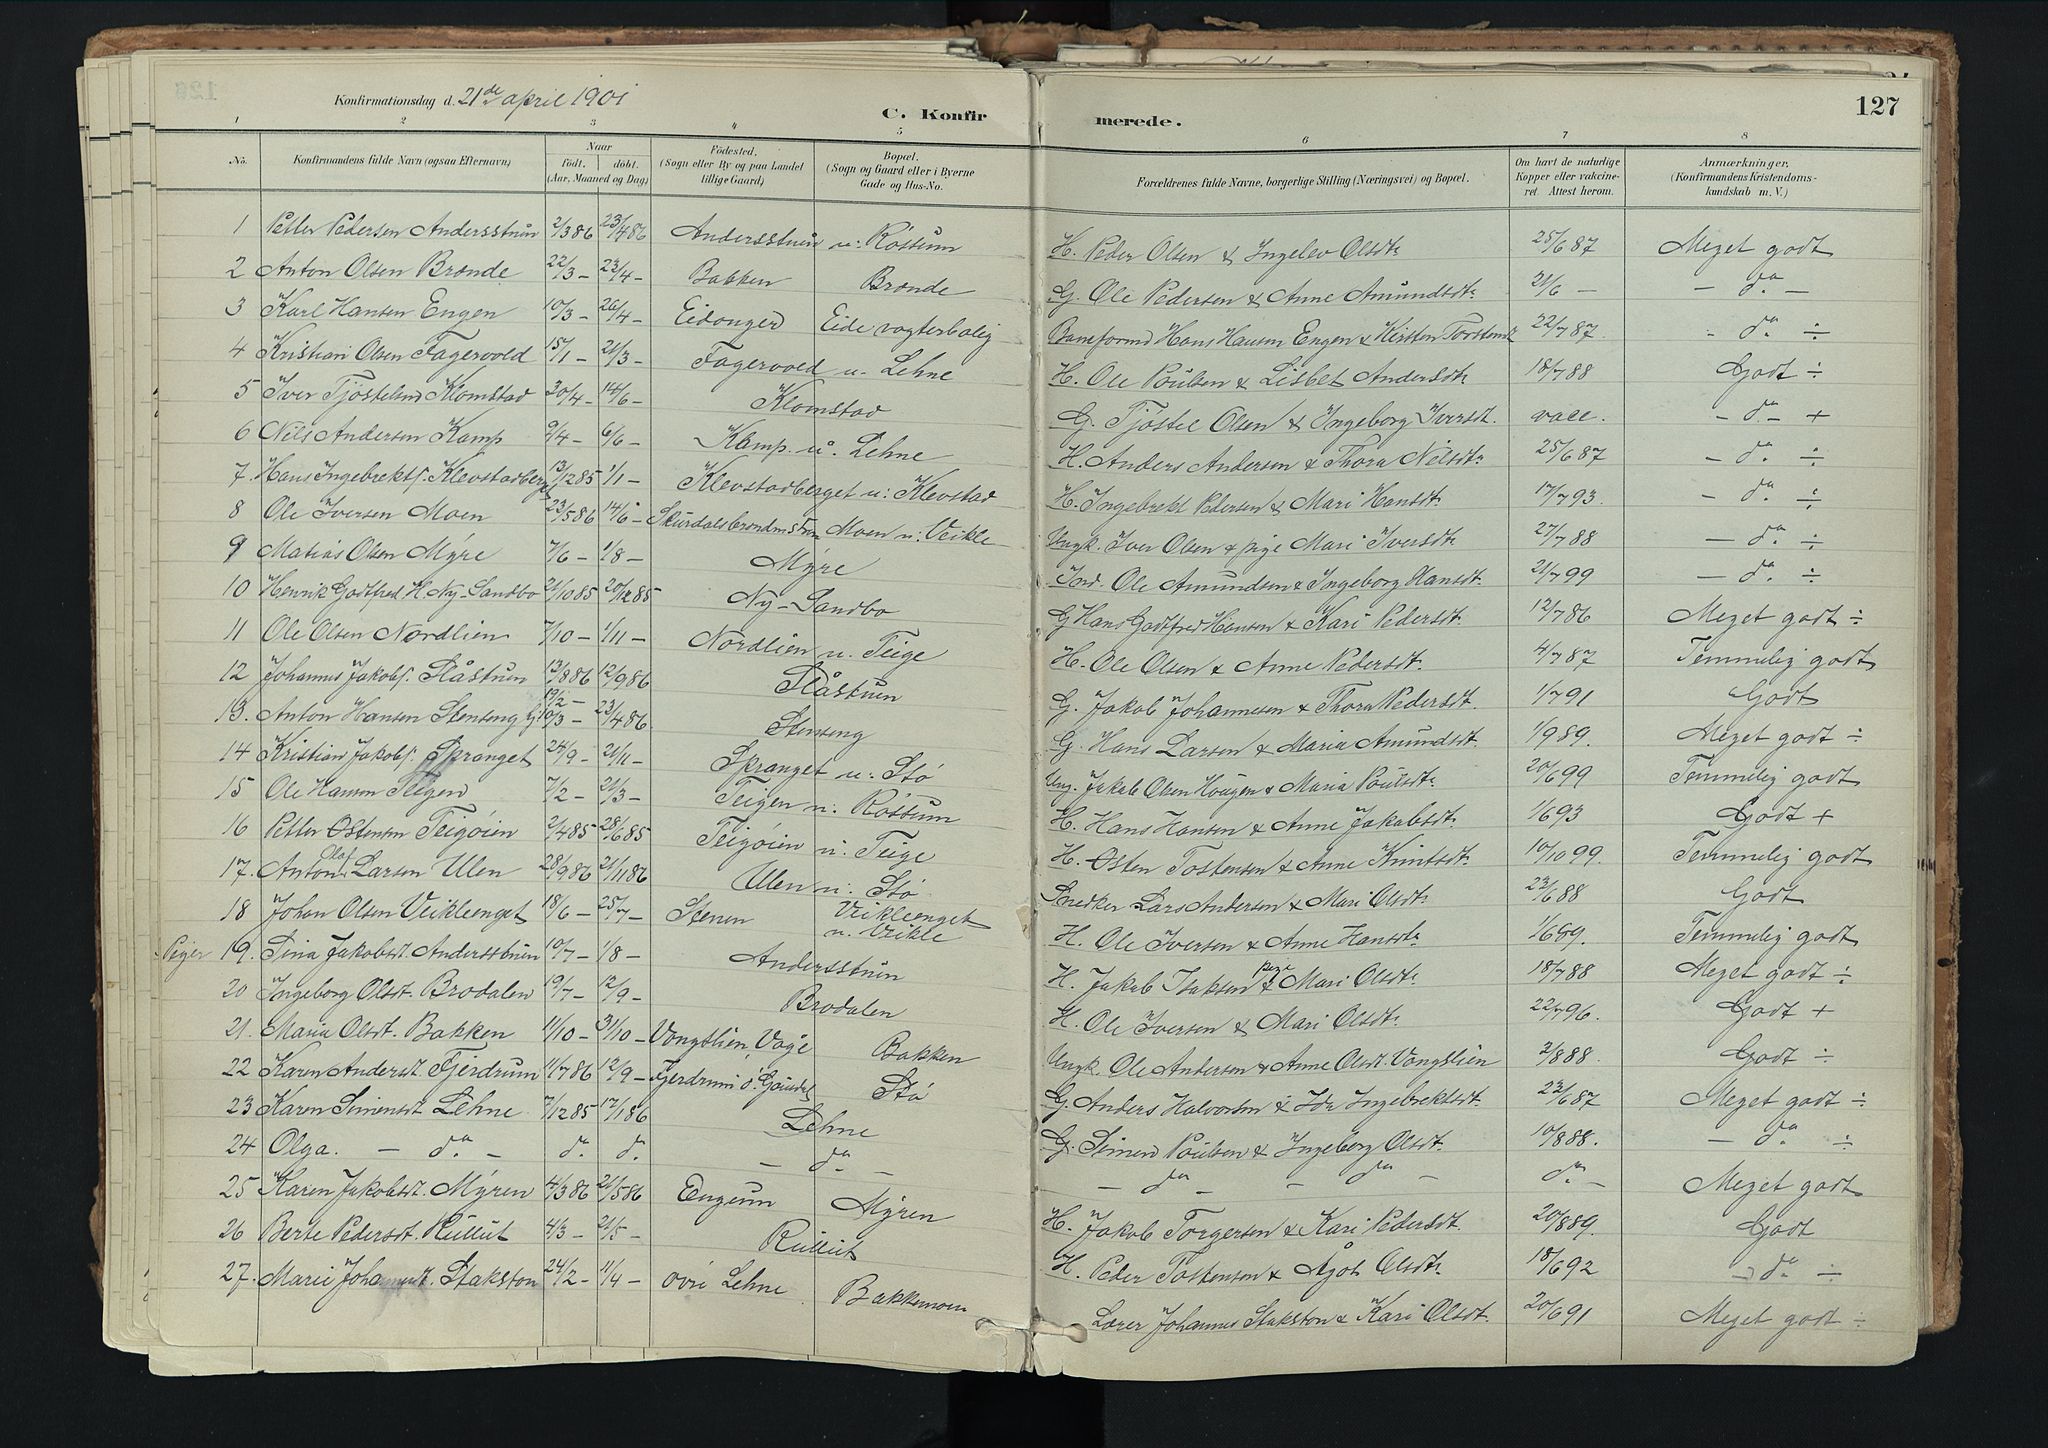 126
Konfirmationsdag d. 21de april 1901
C. Konfirmerede.
127
1 2 3 4 5 6 7 8
No. Konfirmandens fulde Navn (ogsaa Efternavn) Naar født. døbt. (Aar, Maaned og Dag) Födested. (Sogn eller By og paa Landet tillige Gaard) Bopæl. (Sogn og Gaard eller i Byerne Gade og Hus-No. Forældrenes fulde Navne, borgerlige Stilling (Næringsvei) og Bopæl. Om havt de naturlige Kopper eller vakcineret. Attest herom. Anmærkninger, (Konfirmandens Kristendomskundskab m. V.)
1 Petter Pedersen Andersstuen 2/386 23/486 Andersstuen u: Rössum H. Peder Olsen & Ingelev Olsdt: 25/687 Meget godt
2 Anton Olsen Brænde 22/3 - 23/4 - Bakken Brænde G. Ole Pedersen & Anne Amundsdt: 21/6 - - do. -
3 Karl Hansen Engen 10/3 - 26/4 - Eidanger Eide vogterbolig Baneformd Hans Hansen Engen & Kirsten 22/787. - do. ÷
4 Kristian Olsen Fagervold 15/1 - 21/3 - Fagervold u. Lehne H. Ole Poulsen & Lisbet Andersdt: 18/788 Godt ÷
5 Iver Tjöstelsen Klomstad 30/4 - 14/6 - Klomstad G. Tjöstel Olsen & Ingeborg Iversdt. vacc. - do - +
6 Nils Andersen Kamp 9/4 - 6/6 - Kamp. u. Lehne H. Anders Andersen & Thora Nilsdt: 25/687 - do. ÷
7. Hans Ingebrekts. Klevstadberget 13/1285 1/1 - Klevstadberget u: Klevstad H. Ingebrekt Pedersen & Mari Hansdt. 17/793. - do. ÷
8 Ole Iversen Moen 23/586 14/6 - Moen u: Veikle Ungk. Iver Olsen & pige Mari Iversdt: 27/788 - do. ÷
9 Matias Olsen Myre 7/6 - 1/8 - Myre Ind. Ole Amundsen & Ingeborg Hansdt. 21/799 - do. ÷
10 Henrik Godtfred H. Ny-Sandbo 21/1085 20/1285 Ny-Sandbo G Hans Godtfred Hansen & Kari Pedersdt. 12/786 Meget godt ÷
11 Ole Olsen Nordlien 7/10 - 1/11 - Nordlien u. Teige H. Ole Olsen & Anne Pedersdt. 4/787 Temmelig godt
12 Johannes Jakobs. Slåstuen 13/886 12/986 Slåstuen G. Jakob Johannesen & Thora Pedersdt. 1/791 Godt
13. Anton Hansen Stenseng 19/2 - 10/3 - 23/486. Stenseng G. Hans Larsen & Maria Amundsdt. 1/989. Meget godt ÷
14 Kristian Jakobs. Spranget 24/9 - 21/11 - Spranget u: Stö Ung. Jakob Olsen Haugen & Maria Poulsdt: 20/699 Temmelig godt
15 Ole Hansen Teigen 7/2 - 21/3 - Teigen u: Rössum H. Hans Hansen & Anne Jakobsdt. 1/693 Godt +
16 Petter Ostensen Teigöien 2/485 28/685 Teigöien u: Teige H. Osten Tostensen & Anne Knutsdt: 10/1099. Temmelig godt
17. Anton Olaf Larsen Ulen 28/986 21/1186 Ulen u: Stö Snedker Lars Andersen & Mari Olsdt: 23/688 Godt
18 Johan Olsen Veikleenget 18/6 - 25/7 - Stenen Veikleenget u. Veikle H. Ole Iversen & Anne Hansdt: 1/689. Temmelig godt
Piger 19. Sina Jakobsdt. Andersstuen 10/7 - 1/8 - Andersstuen H. Jakob Isaksen & pige Mari Olsdt: 18/788 Meget godt ÷
20 Ingeborg Olsdt. Brodalen 19/7 - 12/9 - Brodalen H. Ole Iversen & Mari Olsdt: 22/796. Godt +
21. Maria Olsdt. Bakken 11/10 - 31/10 - Vongslien Våge Bakken Ungk. Ole Andersen & Anne Olsdt. Vongslien 2/888. Godt ÷
22 Karen Andersdt Fjerdrum 11/786 12/9 - Stö G. Anders Halvorsen & Ida Ingebrektsdt. 23/687 Meget godt ÷
23 Karen Simensdt Lehne 7/1285 17/186 Lehne G. Simen Poulsen & Ingeborg Olsdt. 10/888. - do. ÷
24 Olga. - do. - do. do. - do. - - do - - do - do. - Meget godt
25 Karen Jakobsdt. Myren 4/386 21/586 Engeum Myren H. Jakob Torgersen & Kari Pedersdt. 20/889. Godt
26 Berte Pedersdt. Rullut 4/3 - 21/5 - Rullut H. Peder Tostensen & Ågot Olsdt: 18/692 - do. ÷
27. Marie Johannesdt. Stakston 24/2 - 11/4 - övre Lehne Bakkemoen Lærer Johannes Stakston & Kari Olsdt. 20/691 Meget godt ÷